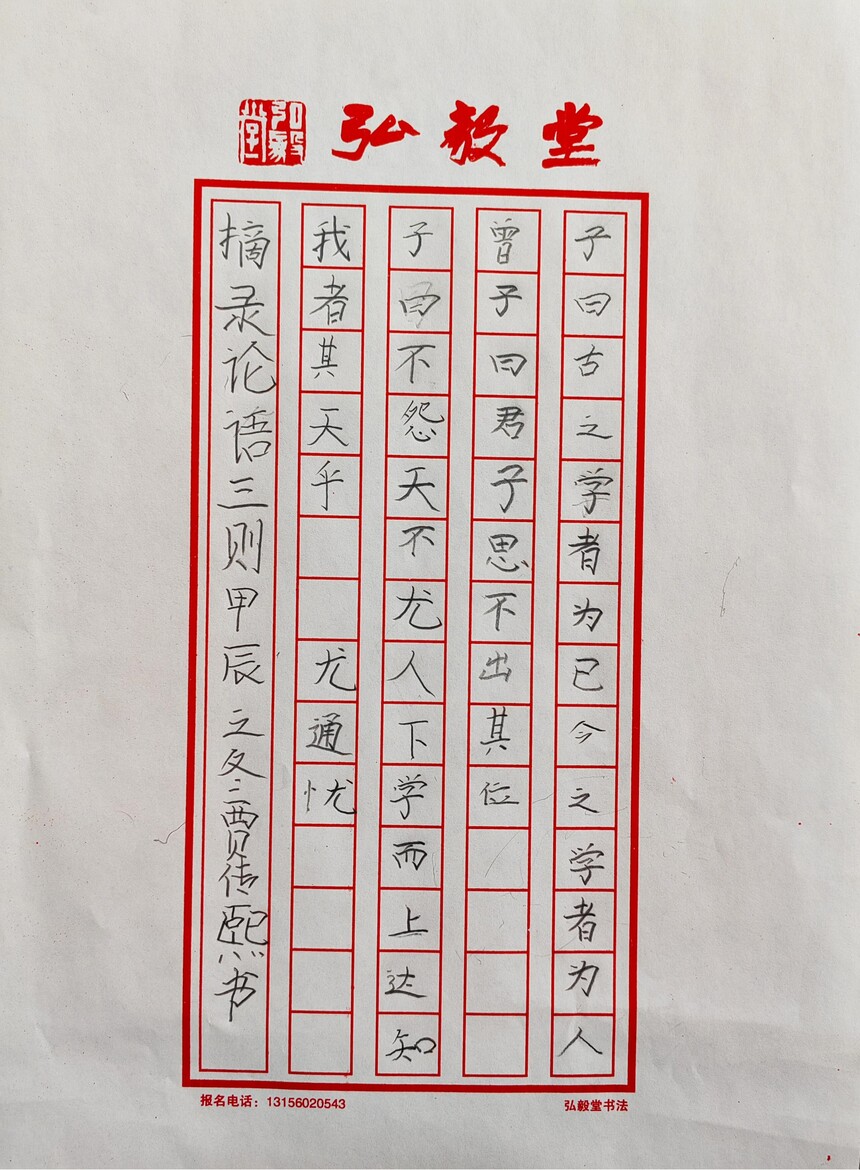 弘毅堂
弘毅堂
子曰古之学者为已今之学者为人
曾子曰君子思不出其位
子曰不怨天不尤人下学而上达知
我者其天乎 尤通忧
摘录论语三则甲辰之冬贾传熙书
报名电话：13156020543
弘毅堂书法